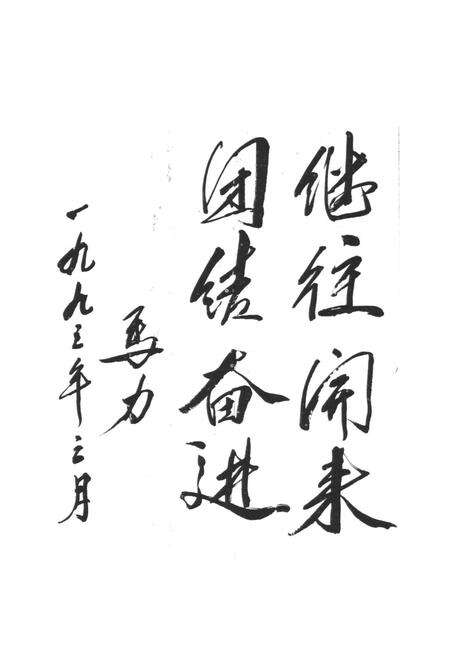 继往开来
团结奋进
马力
一九九三年三月